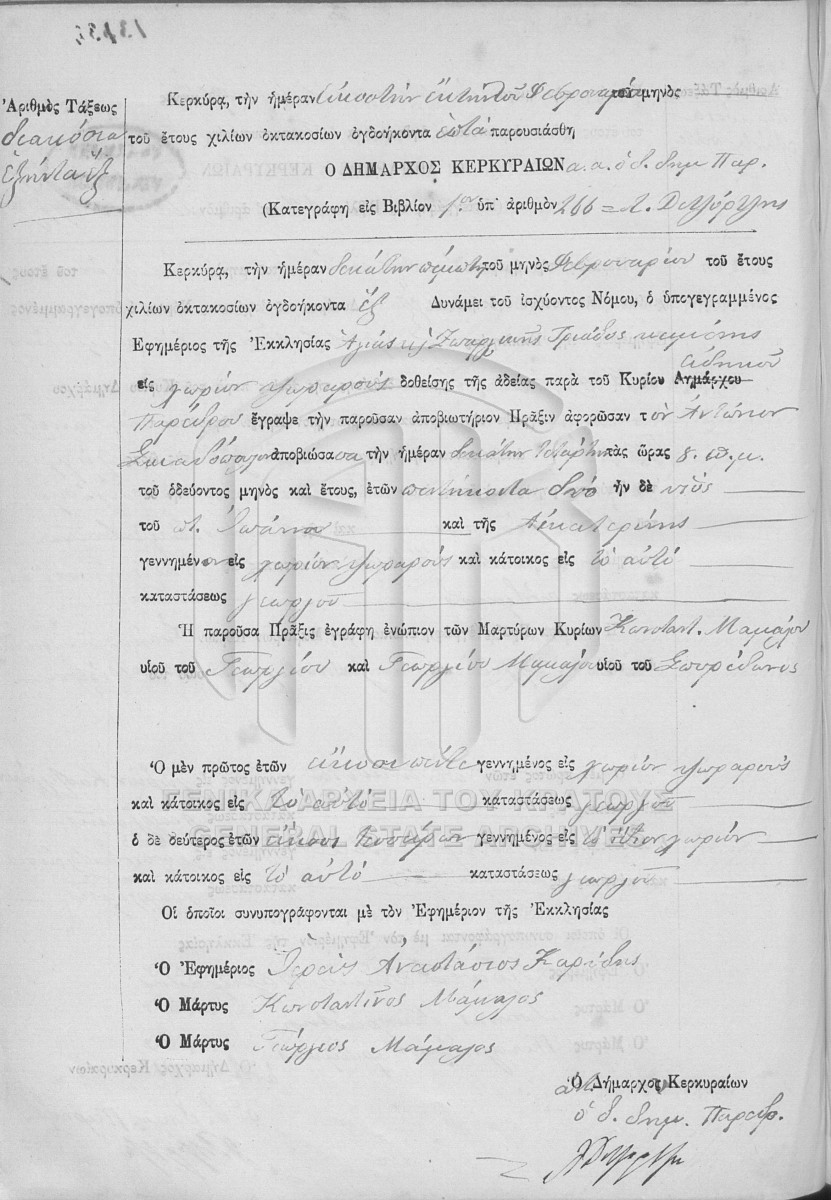 Ἀριθμὸς Τάξεως
διακόσια
ἑξήντα ἕξ
Κερκύρα, τὴν ἡμέραν εἰκοστὴν ἕκτην τοῦ Φεβρουαρίου μηνὸς
τοῦ ἔτους χιλίων ὀκτακοσίων ὀγδοήκοντα ἑπτὰ παρουσιάσθη
Ο ΔΗΜΑΡΧΟΣ ΚΕΡΚΥΡΑΙΩΝ α.α. ὁ δ. δημ Παρ.
(Κατεγράφη εἰς Βιβλίον 1ον ὑπ' ἀριθμὸν 266 =
Κερκύρα, τὴν ἡμέραν δεκάτην πέμπτην τοῦ μηνὸς Φεβρουαρίου τοῦ ἔτους
χιλίων ὀκτακοσίων ὀγδοήκοντα ἕξ Δυνάμει τοῦ ἰσχύοντος Νόμου, ὁ ὑπογεγραμμένος
Ἐφημέριος τῆς Ἐκκλησίας Ἁγίας κ Ζωαρχικῆς Τριάδος κειμένης
εἰς χωρίον Ψωραροὺς δοθείσης τῆς ἀδείας παρὰ τοῦ Κυρίου Δημάρχου εἰδικοῦ
Παρέδρου ἔγραψε τὴν παροῦσαν ἀποβιωτήριον Πρᾶξιν ἀφορῶσαν τὸν Ἀντώνιον
ἀποβιώσασα τὴν ἡμέραν δεκάτην τετάρτην τὰς ὥρας 8. π.μ.
τοῦ ὁδεύοντος μηνὸς καὶ ἔτους, ἐτῶν πεντήκοντα δύο ἦν δὲ υἱὸς
τοῦ π. Ἰωάννου καὶ τῆς Αἰκατερίνης
γεννημένον εἰς χωρίον Ψωραροὺς καὶ κάτοικος εἰς τὸ αὐτὸ
καταστάσεως γεωργοῦ
Ἡ παροῦσα Πρᾶξις ἐγράφη ἐνώπιον τῶν Μαρτύρων Κυρίων Κωνσταντ. Μάμαλου
υἱοῦ τοῦ Γεωργίου καὶ Γεωργίου Μάμαλου υἱοῦ τοῦ Σπυρίδωνος
Ὁ μὲν πρῶτος ἐτῶν εἴκοσι πέντε γεννημένος εἰς χωρίον Ψωραροὺς
καὶ κάτοικος εἰς τὸ αὐτὸ καταστάσεως γεωργοῦ
ὁ δὲ δεύτερος ἐτῶν εἴκοσι τεσσάρων γεννημένος εἰς τὸ ἴδιον χωρίον
καὶ κάτοικος εἰς τὸ αὐτὸ καταστάσεως γεωργοῦ
Οἱ ὁποῖοι συνυπογράφονται μὲ τὸν Ἐφημέριον τῆς Ἐκκλησίας
Ὁ Ἐφημέριος Ἱερεὺς Ἀναστάσιος Καρύδης
Ὁ Μάρτυς Κωνσταντῖνος Μάμαλος
Ὁ Μάρτυς Γεώργιος Μάμαλος
Ὁ Δήμαρχος Κερκυραίων
ὁ δ. δημ. Παρεδρ.
ΓΕΝΙΚΑ ΑΡΧΕΙΑ ΤΟΥ ΚΡΑΤΟΥΣ
GENERAL STATE ARCHIVES